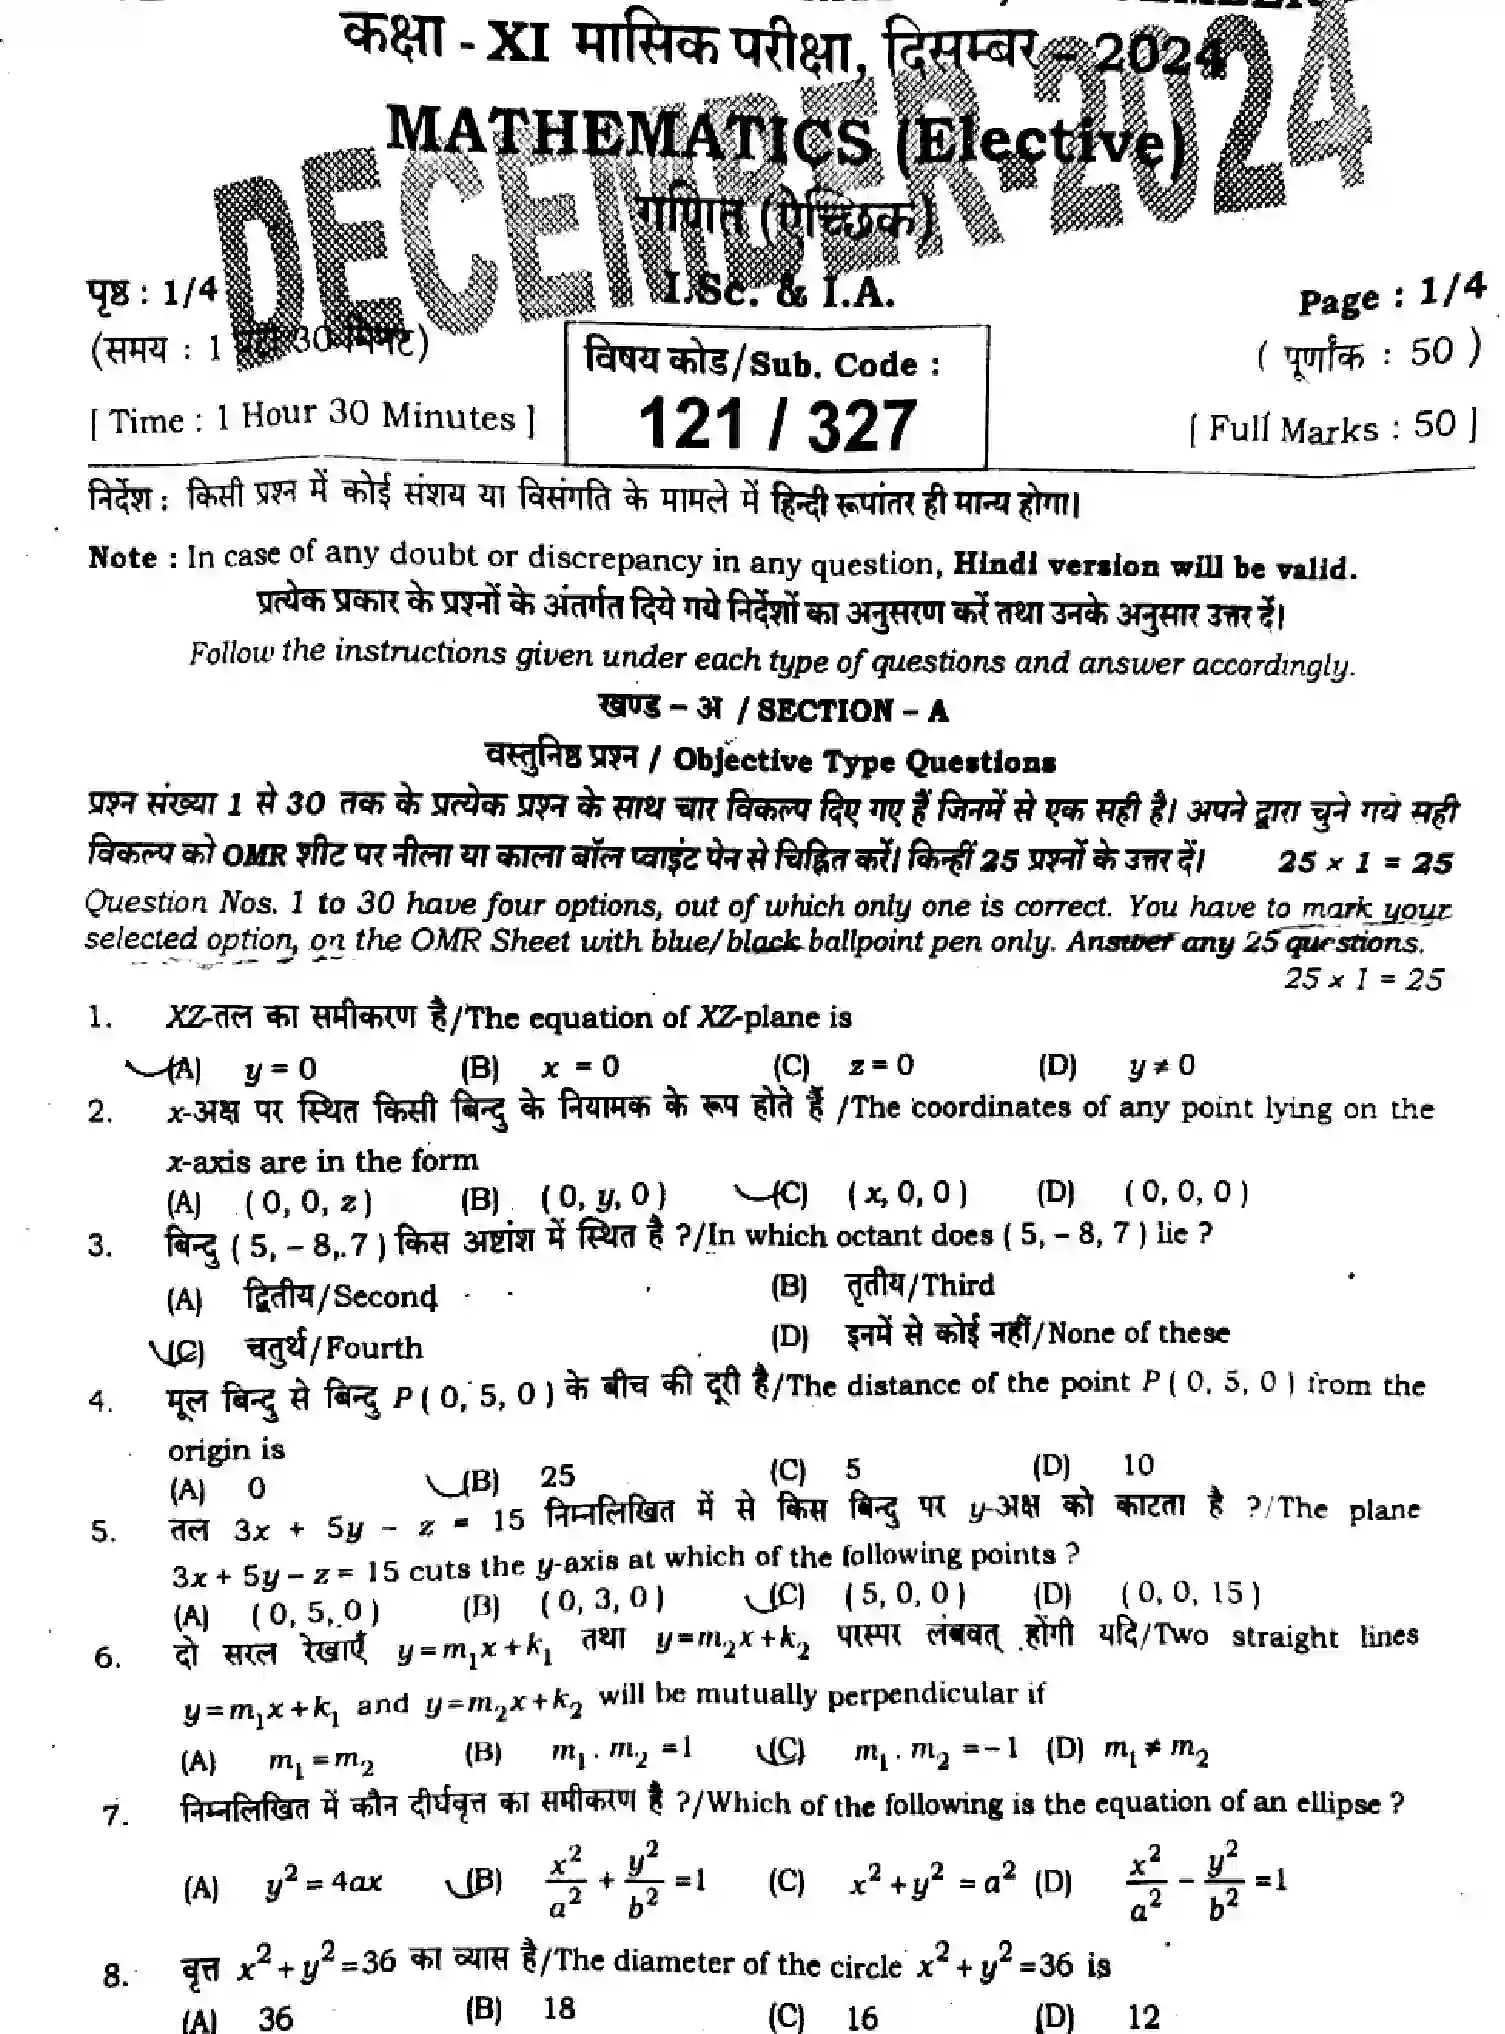 कक्षा - XI मासिक परीक्षा, दिसम्बर - 2024
MATHEMATICS (Elective)
गणित (ऐच्छिक)
DECEMBER-2024
I.Sc. & I.A.
पृष्ठ : 1/4
Page : 1/4
(समय : 1 घंटा 30 मिनट)
विषय कोड/Sub. Code :
( पूर्णांक : 50 )
121 / 327
[ Time : 1 Hour 30 Minutes ]
[ Full Marks : 50 ]
निर्देश : किसी प्रश्न में कोई संशय या विसंगति के मामले में हिन्दी रूपांतर ही मान्य होगा।
Note : In case of any doubt or discrepancy in any question, Hindi version will be valid.
प्रत्येक प्रकार के प्रश्नों के अंतर्गत दिये गये निर्देशों का अनुसरण करें तथा उनके अनुसार उत्तर दें।
Follow the instructions given under each type of questions and answer accordingly.
खण्ड – अ / SECTION – A
वस्तुनिष्ठ प्रश्न / Objective Type Questions
प्रश्न संख्या 1 से 30 तक के प्रत्येक प्रश्न के साथ चार विकल्प दिए गए हैं जिनमें से एक सही है। अपने द्वारा चुने गये सही
विकल्प को OMR शीट पर नीला या काला बॉल प्वाइंट पेन से चिह्नित करें। किन्हीं 25 प्रश्नों के उत्तर दें। 25 × 1 = 25
Question Nos. 1 to 30 have four options, out of which only one is correct. You have to mark your
selected option, on the OMR Sheet with blue/black ballpoint pen only. Answer any 25 questions.
25 × 1 = 25
1. XZ-तल का समीकरण है/The equation of XZ-plane is
(A) y = 0 (B) x = 0 (C) z = 0 (D) y ≠ 0
2. x-अक्ष पर स्थित किसी बिन्दु के नियामक के रूप होते हैं /The coordinates of any point lying on the
x-axis are in the form
(A) ( 0, 0, z ) (B) ( 0, y, 0 ) (C) ( x, 0, 0 ) (D) ( 0, 0, 0 )
3. बिन्दु ( 5, – 8, 7 ) किस अष्टांश में स्थित है ?/In which octant does ( 5, – 8, 7 ) lie ?
(A) द्वितीय/Second (B) तृतीय/Third
(C) चतुर्थ/Fourth (D) इनमें से कोई नहीं/None of these
4. मूल बिन्दु से बिन्दु P ( 0, 5, 0 ) के बीच की दूरी है/The distance of the point P ( 0, 5, 0 ) from the
origin is
(A) 0 (B) 25 (C) 5 (D) 10
5. तल 3x + 5y – z = 15 निम्नलिखित में से किस बिन्दु पर y-अक्ष को काटता है ?/The plane
3x + 5y – z = 15 cuts the y-axis at which of the following points ?
(A) ( 0, 5, 0 ) (B) ( 0, 3, 0 ) (C) ( 5, 0, 0 ) (D) ( 0, 0, 15 )
6. दो सरल रेखाएँ y = m₁x + k₁ तथा y = m₂x + k₂ परस्पर लंबवत् होंगी यदि/Two straight lines
y = m₁x + k₁ and y = m₂x + k₂ will be mutually perpendicular if
(A) m₁ = m₂ (B) m₁ . m₂ = 1 (C) m₁ . m₂ = – 1 (D) m₁ ≠ m₂
7. निम्नलिखित में कौन दीर्घवृत्त का समीकरण है ?/Which of the following is the equation of an ellipse ?
(A) y² = 4ax (B) x²/a² + y²/b² = 1 (C) x² + y² = a² (D) x²/a² – y²/b² = 1
8. वृत्त x² + y² = 36 का व्यास है/The diameter of the circle x² + y² = 36 is
(A) 36 (B) 18 (C) 16 (D) 12